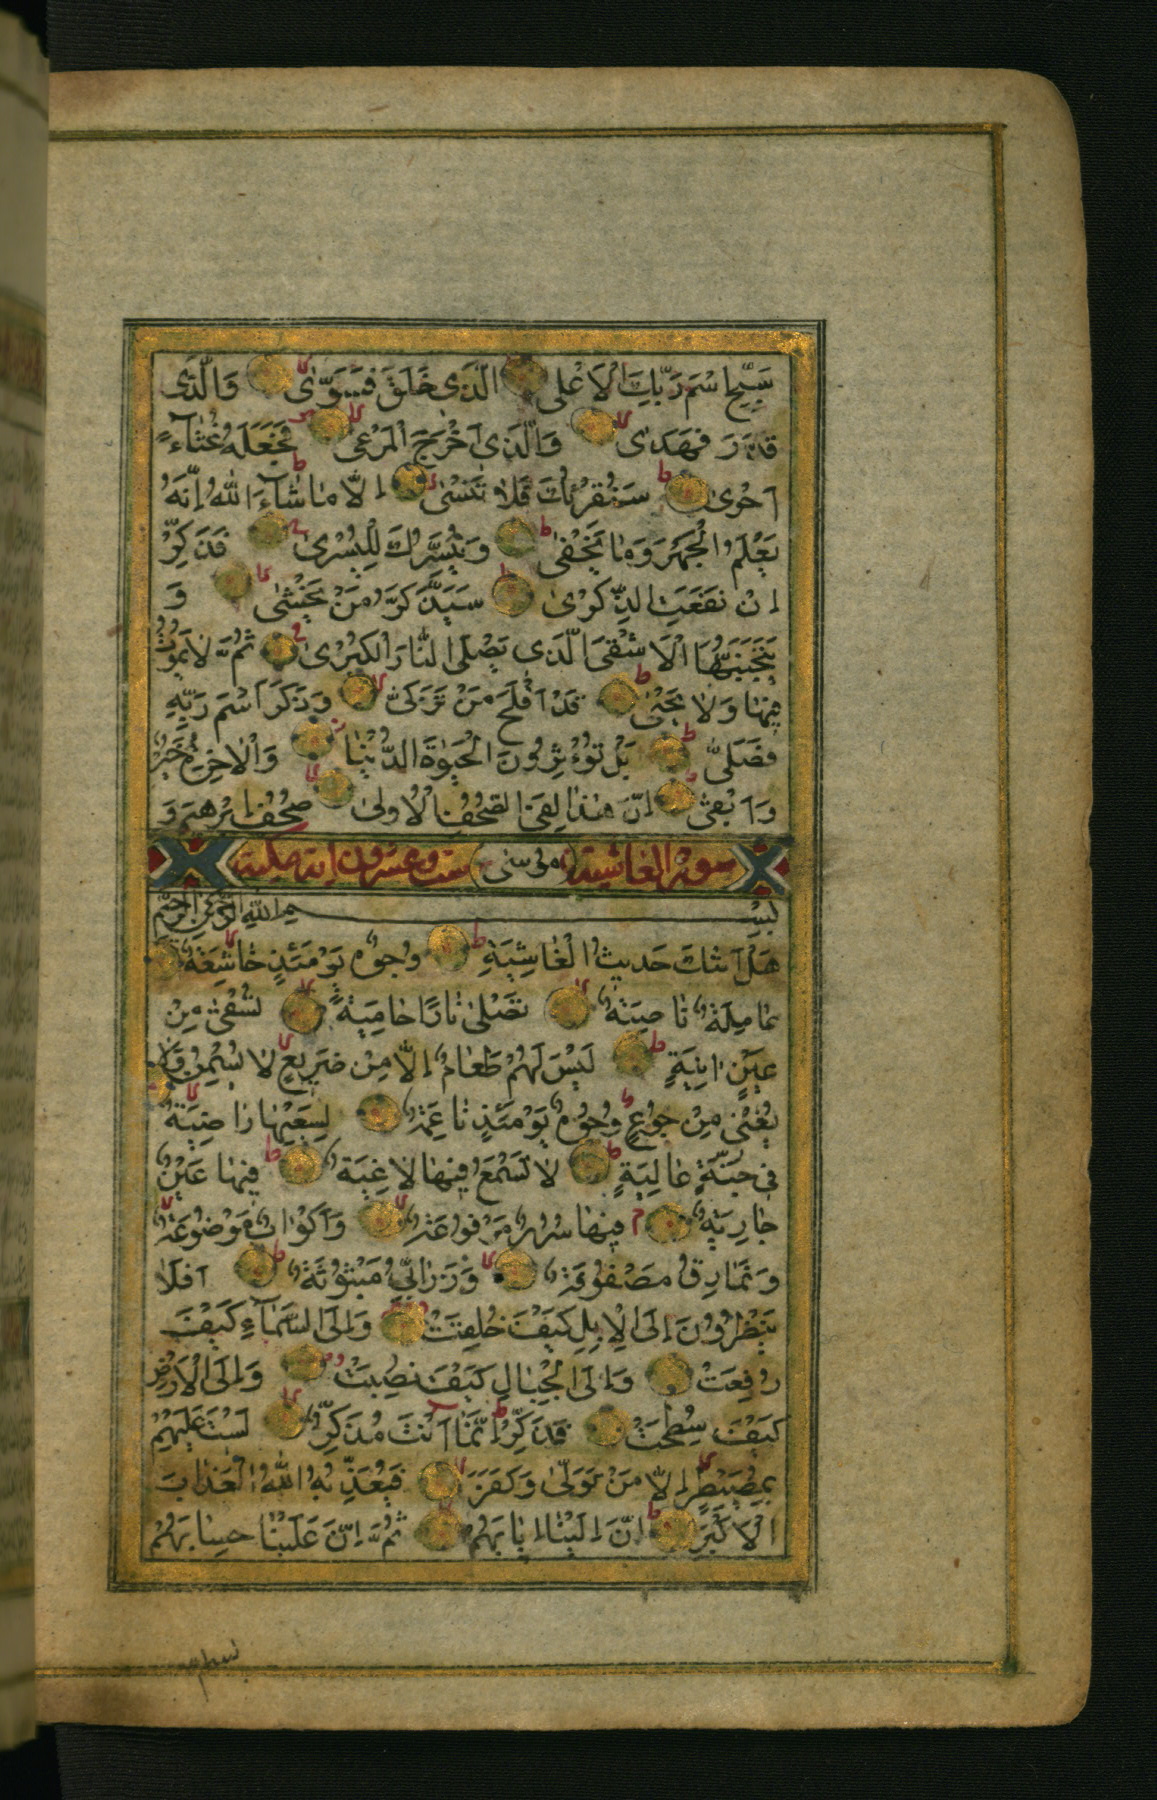 سَبِّحِ اسْمَ رَبِّكَ الْاَعْلٰى الَّذٖى خَلَقَ فَسَوّٰى وَالَّذٖى
قَدَّرَ فَهَدٰى وَالَّذٖى اَخْرَجَ الْمَرْعٰى فَجَعَلَهُ غُثَآءً
اَحْوٰى سَنُقْرِئُكَ فَلَا تَنْسٰى اِلَّا مَا شَآءَ اللّٰهُ اِنَّهُ
يَعْلَمُ الْجَهْرَ وَمَا يَخْفٰى وَنُيَسِّرُكَ لِلْيُسْرٰى فَذَكِّرْ
اِنْ نَفَعَتِ الذِّكْرٰى سَيَذَّكَّرُ مَنْ يَخْشٰى وَ
يَتَجَنَّبُهَا الْاَشْقَى الَّذٖى يَصْلَى النَّارَ الْكُبْرٰى ثُمَّ لَا يَمُوتُ
فِيهَا وَلَا يَحْيٰى قَدْ اَفْلَحَ مَنْ تَزَكّٰى وَذَكَرَ اسْمَ رَبِّهِ
فَصَلّٰى بَلْ تُؤْثِرُونَ الْحَيٰوةَ الدُّنْيَا وَالْاٰخِرَةُ خَيْرٌ
وَاَبْقٰى اِنَّ هٰذَا لَفِى الصُّحُفِ الْاُولٰى صُحُفِ اِبْرٰهٖيمَ وَ
مُوسٰى سورة الغاشية ست وعشرون اية مكية
بِسْمِ اللّٰهِ الرَّحْمٰنِ الرَّحٖيمِ
هَلْ اَتٰيكَ حَدٖيثُ الْغَاشِيَةِ وُجُوهٌ يَوْمَئِذٍ خَاشِعَةٌ
عَامِلَةٌ نَاصِبَةٌ تَصْلٰى نَارًا حَامِيَةً تُسْقٰى مِنْ
عَيْنٍ اٰنِيَةٍ لَيْسَ لَهُمْ طَعَامٌ اِلَّا مِنْ ضَرٖيعٍ لَا يُسْمِنُ وَلَا
يُغْنٖى مِنْ جُوعٍ وُجُوهٌ يَوْمَئِذٍ نَاعِمَةٌ لِسَعْيِهَا رَاضِيَةٌ
فٖى جَنَّةٍ عَالِيَةٍ لَا تَسْمَعُ فِيهَا لَاغِيَةً فِيهَا عَيْنٌ
جَارِيَةٌ فِيهَا سُرُرٌ مَرْفُوعَةٌ وَاَكْوَابٌ مَوْضُوعَةٌ
وَنَمَارِقُ مَصْفُوفَةٌ وَزَرَابِىُّ مَبْثُوثَةٌ اَفَلَا
يَنْظُرُونَ اِلَى الْاِبِلِ كَيْفَ خُلِقَتْ وَاِلَى السَّمَآءِ كَيْفَ
رُفِعَتْ وَاِلَى الْجِبَالِ كَيْفَ نُصِبَتْ وَاِلَى الْاَرْضِ
كَيْفَ سُطِحَتْ فَذَكِّرْ اِنَّمَا اَنْتَ مُذَكِّرٌ لَسْتَ عَلَيْهِمْ
بِمُصَيْطِرٍ اِلَّا مَنْ تَوَلّٰى وَكَفَرَ فَيُعَذِّبُهُ اللّٰهُ الْعَذَابَ
الْاَكْبَرَ اِنَّ اِلَيْنَا اِيَابَهُمْ ثُمَّ اِنَّ عَلَيْنَا حِسَابَهُمْ